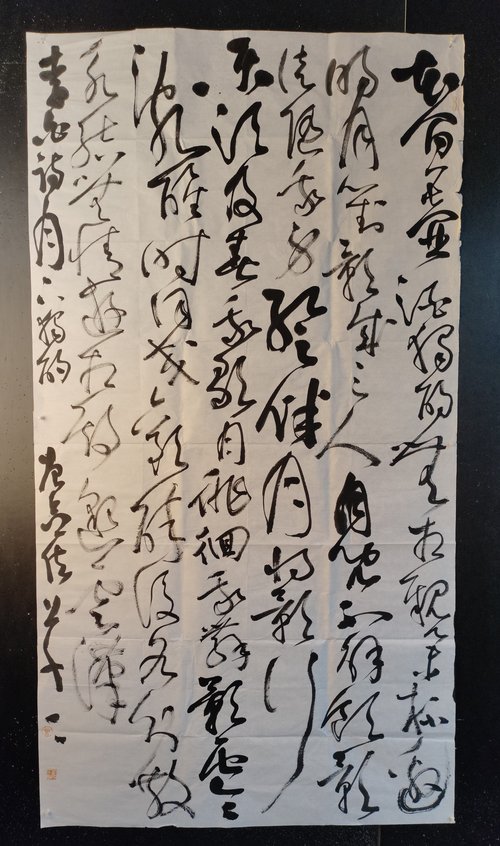 花間一壺酒獨酌無相親舉杯邀
明月對影成三人月既不解飲影
徒隨我身暫伴月將影行
樂須及春我歌月徘徊我舞影零
亂醒時同交歡醉後各分散
永結無情遊相期邈雲漢
李白詩月下獨酌